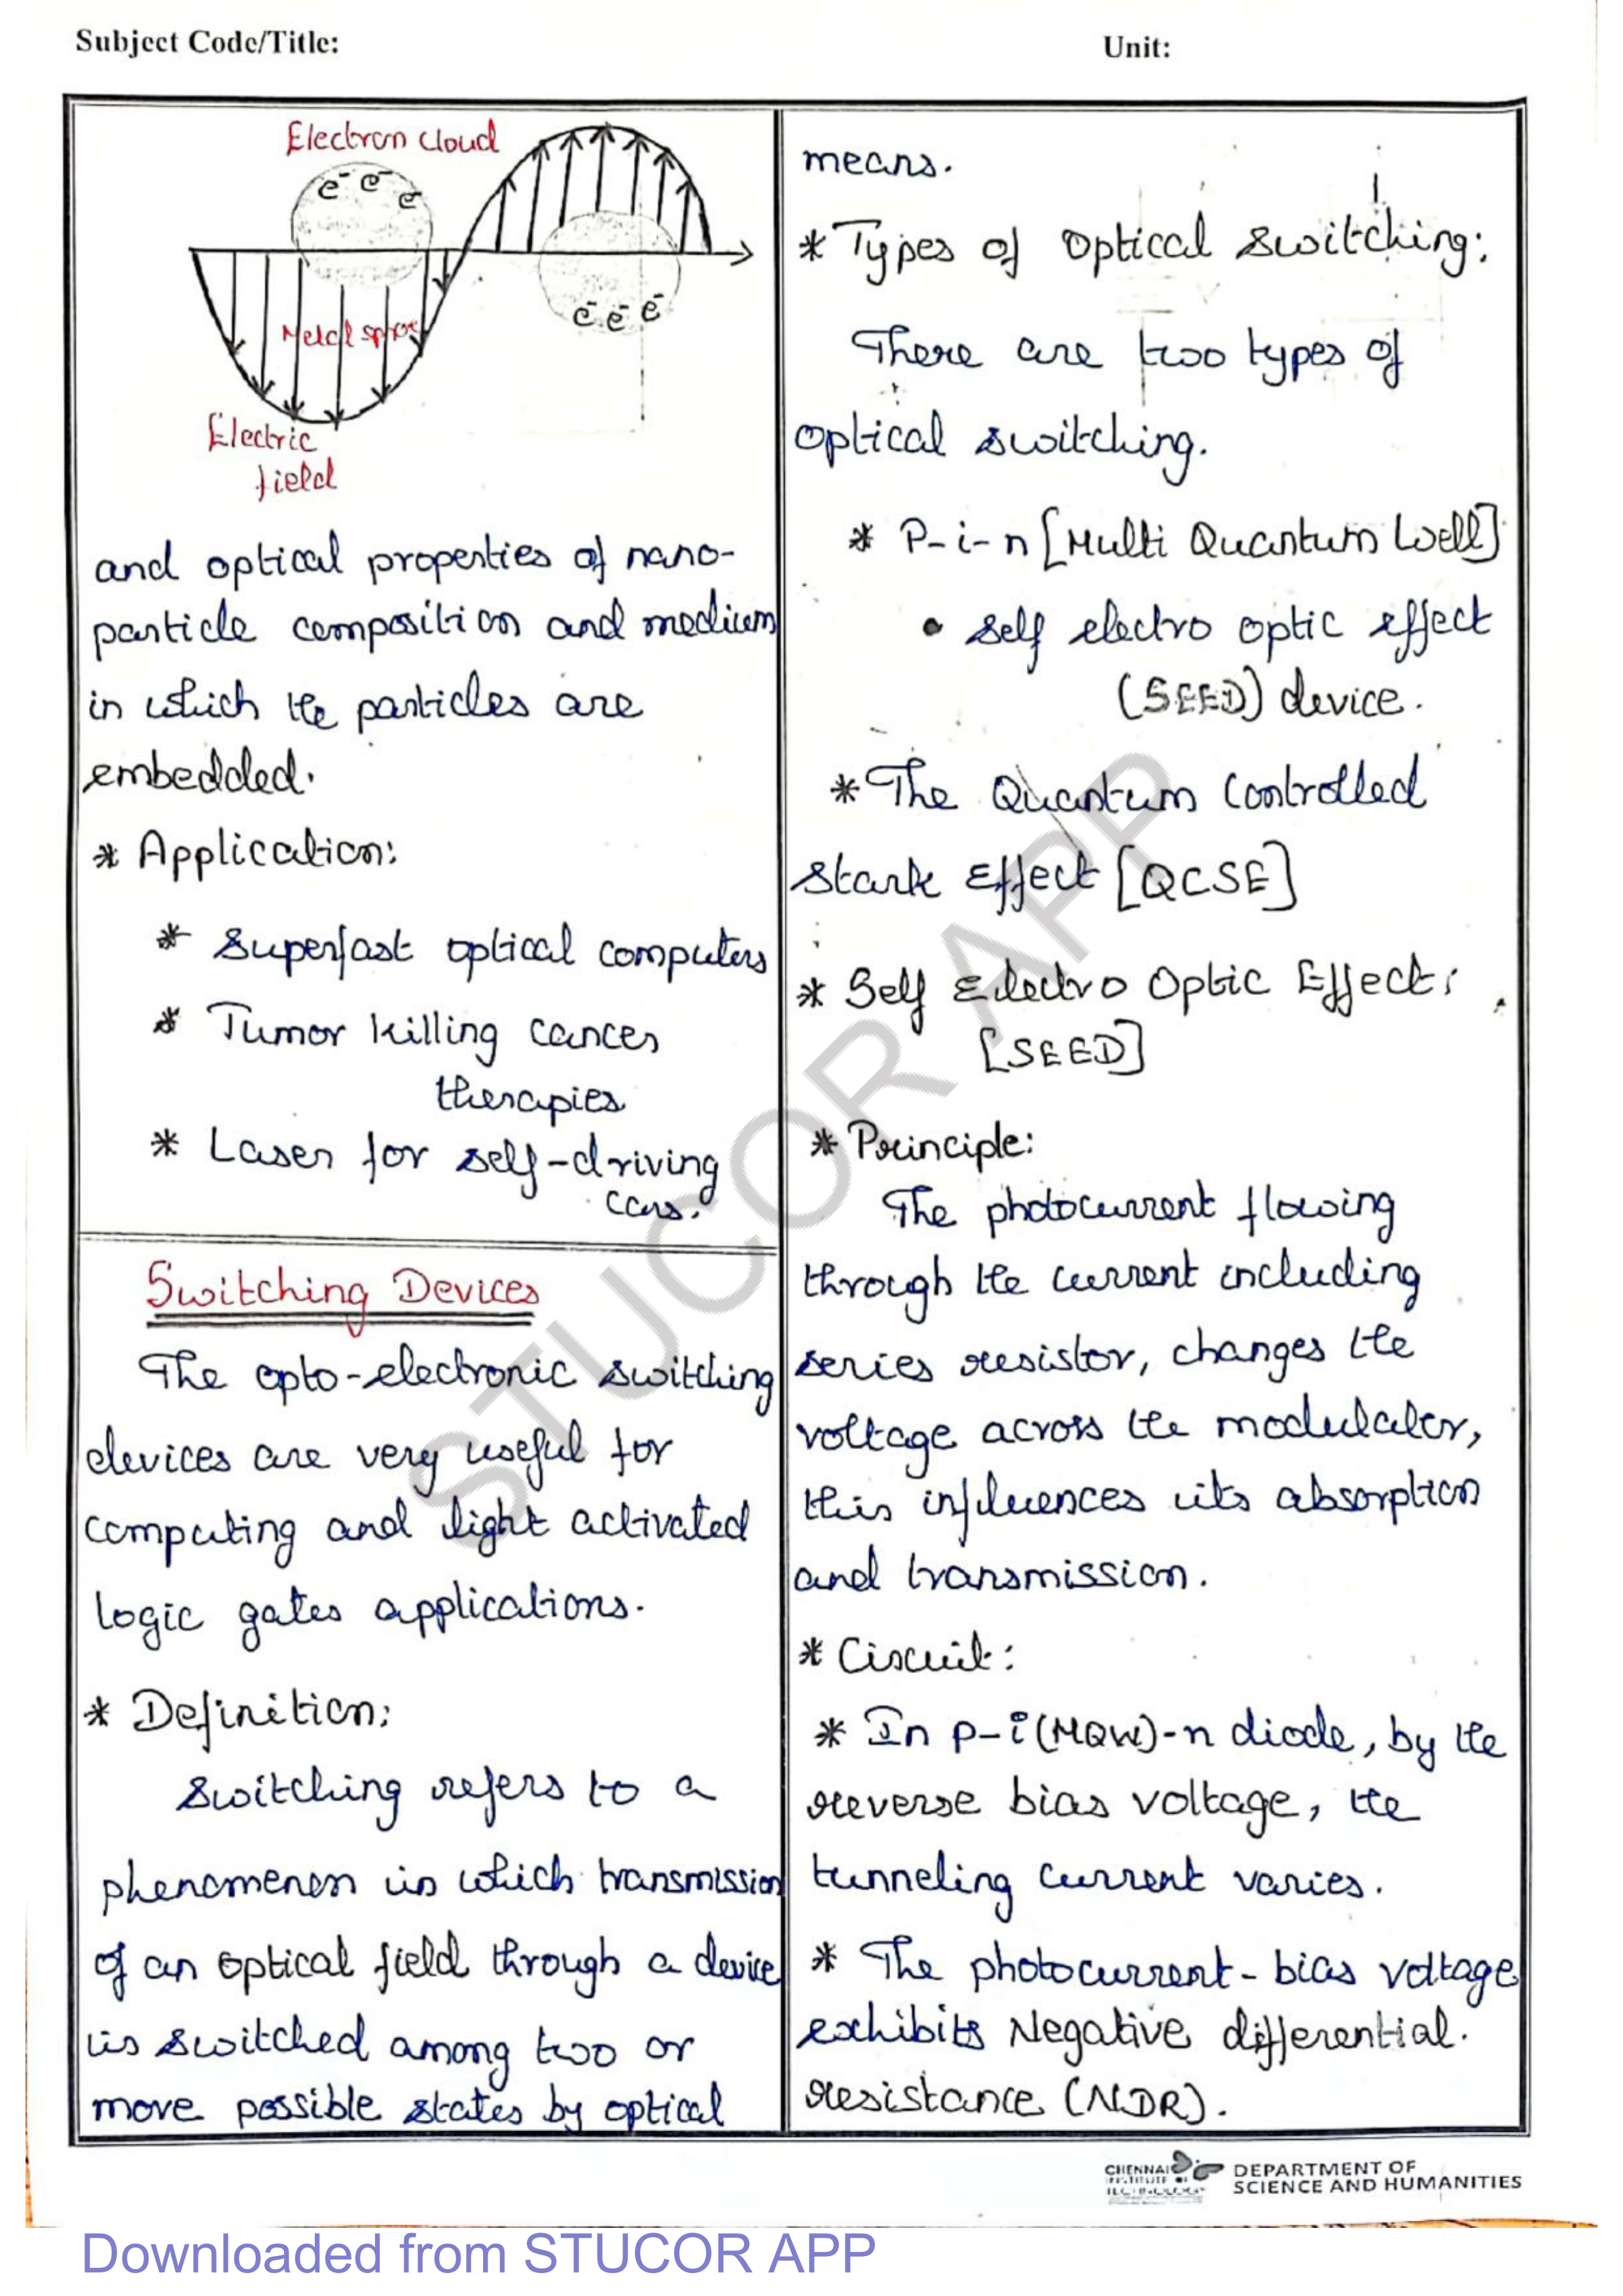 Subject Code/Title:
Unit:
Electron cloud
e⁻ e⁻ e
e⁻ e⁻ e⁻
Metal
Electric
field
and optical properties of nano-
particle composition and medium
in which the particles are
embedded.
* Application:
* Superfast optical computers
* Tumor killing cancer
therapies
* Laser for self-driving
cars.
Switching Devices
The opto-electronic switching
devices are very useful for
computing and light activated
logic gates applications.
* Definition:
Switching refers to a
phenomenon in which transmission
of an optical field through a device
is switched among two or
more possible states by optical
means.
* Types of optical switching:
There are two types of
optical switching.
* P-i-n [Multi Quantum Well]
• Self electro optic effect
(SEED) device.
* The Quantum Controlled
Stark Effect [QCSE]
* Self Electro Optic Effect:
[SEED]
* Principle:
The photocurrent flowing
through the current including
series resistor, changes the
voltage across the modulator,
this influences its absorption
and transmission.
* Circuit:
* In p-i(MQW)-n diode, by the
reverse bias voltage, the
tunneling current varies.
* The photocurrent-bias voltage
exhibits Negative differential.
resistance (NDR).
STUCOR APP
CHENNAI
INSTITUTE OF
TECHNOLOGY
DEPARTMENT OF
SCIENCE AND HUMANITIES
Downloaded from STUCOR APP